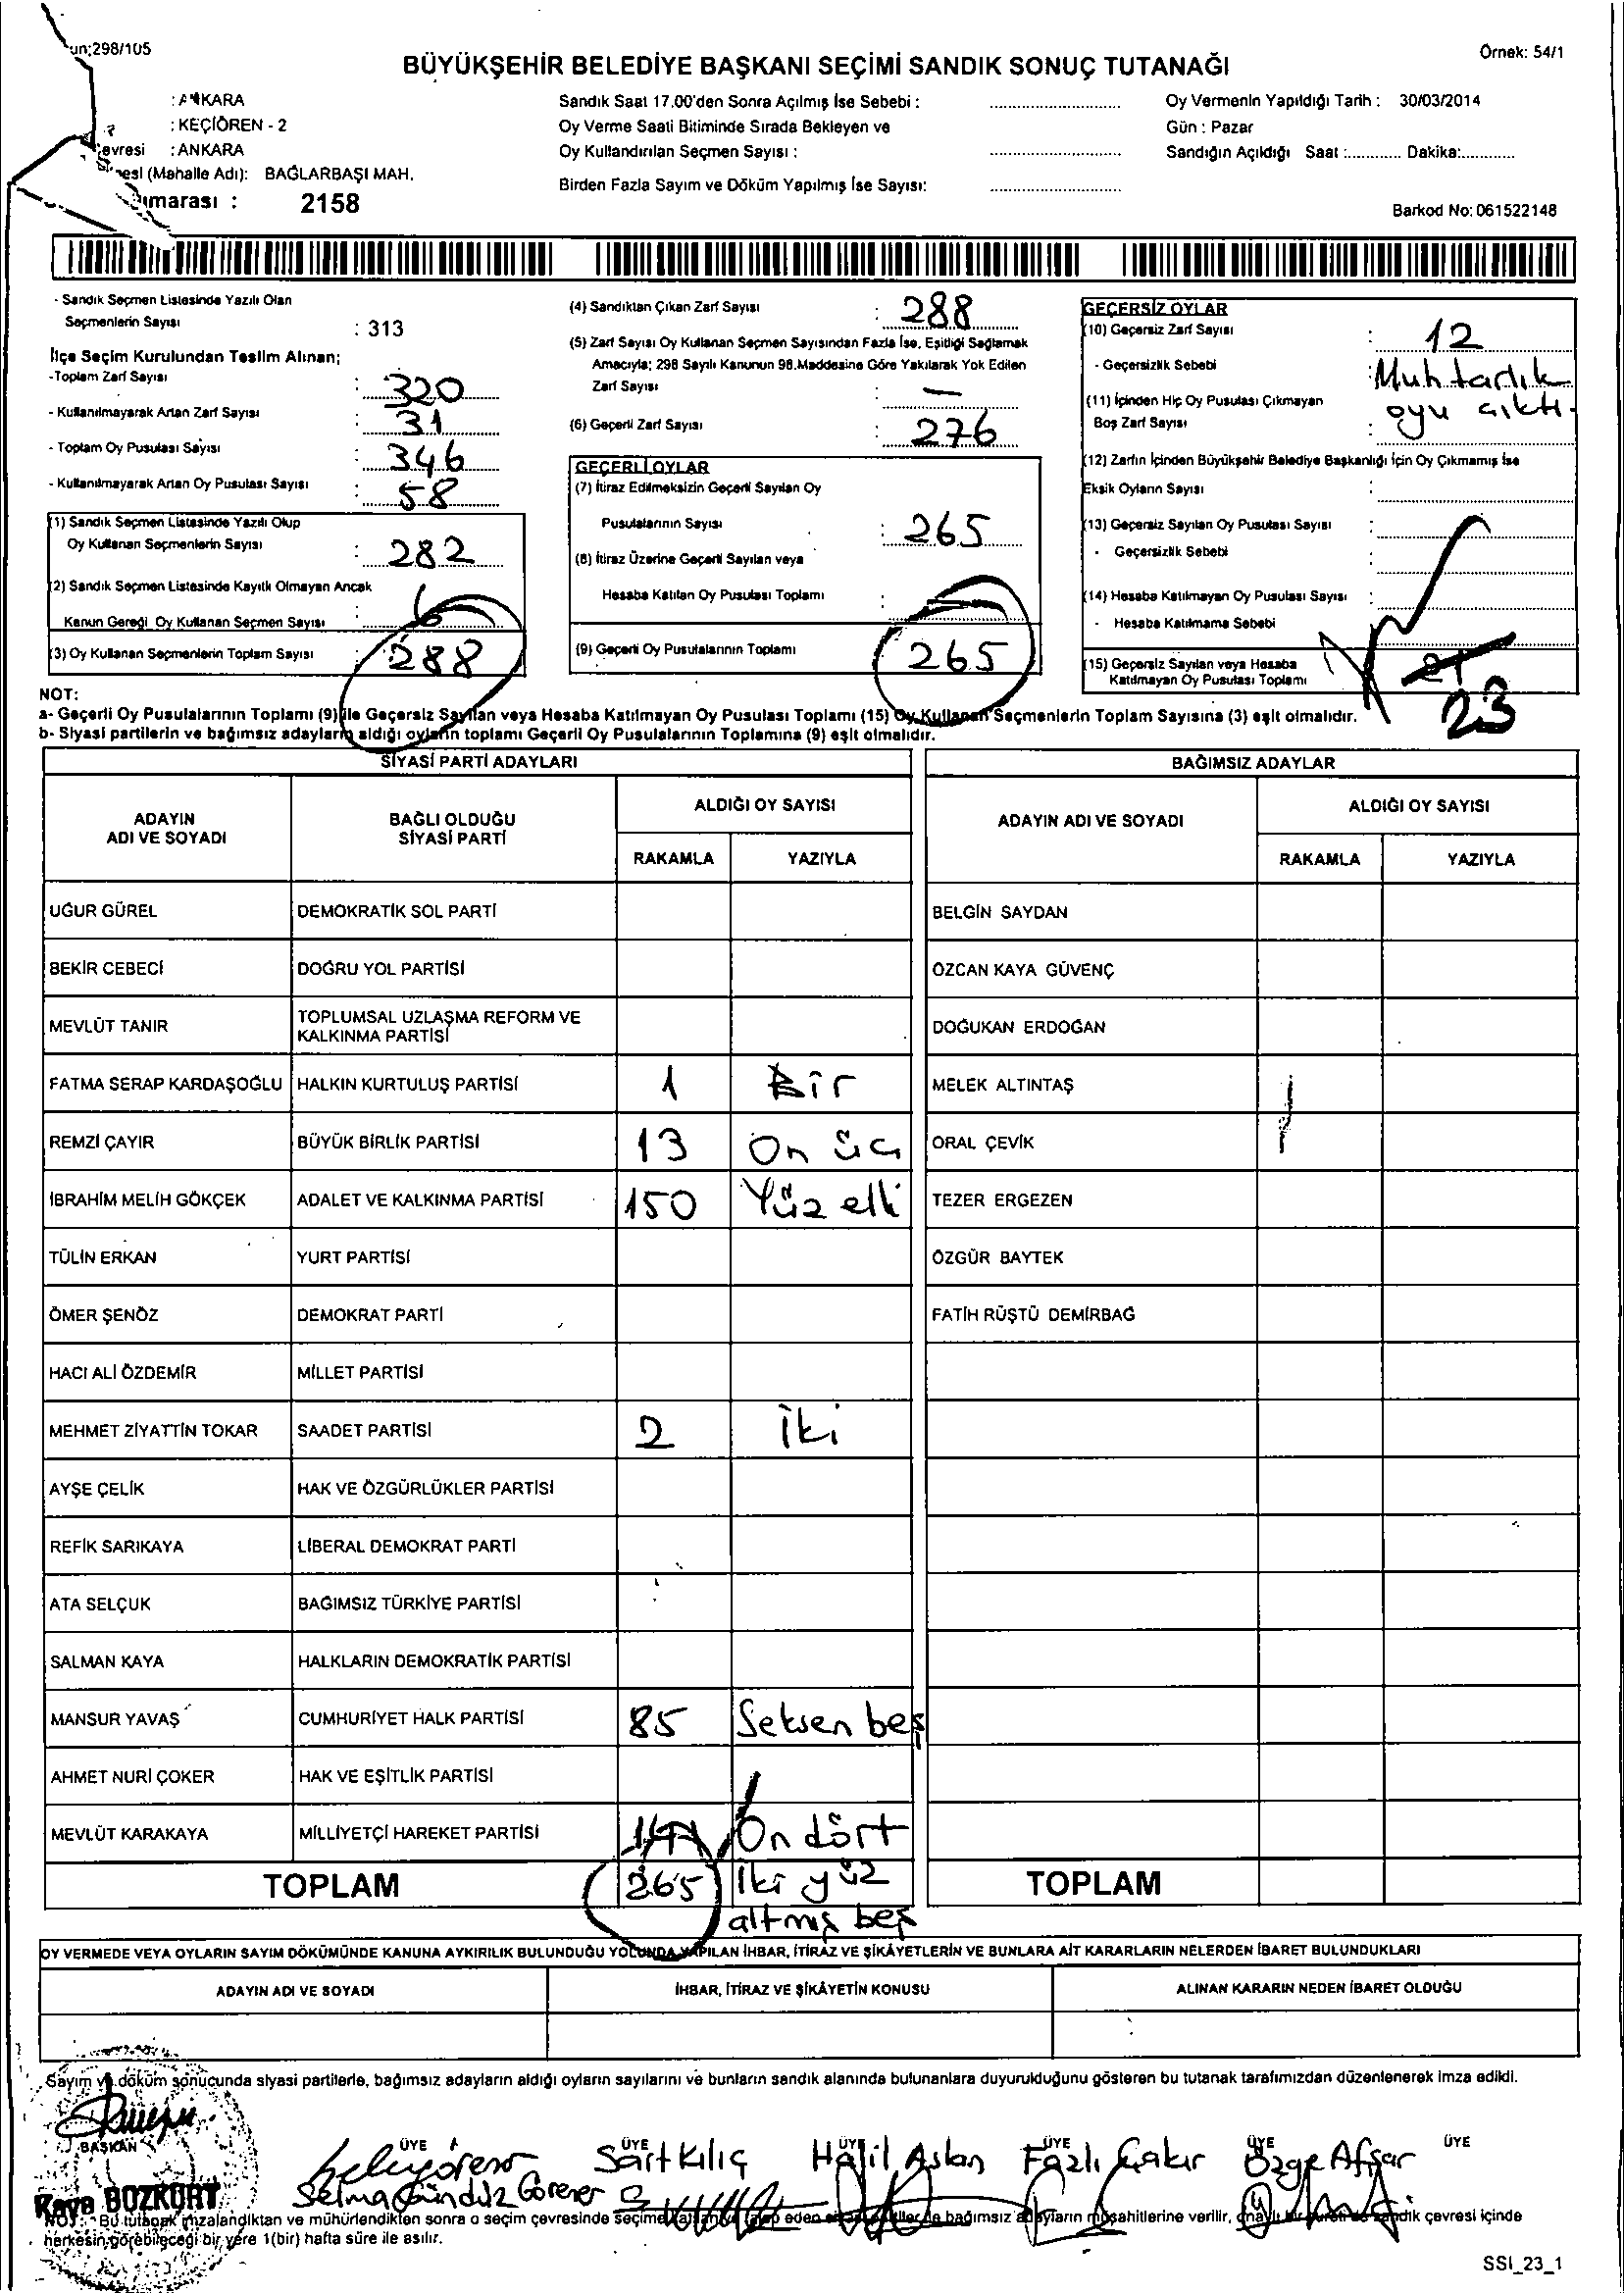 un;298/105
Örnek: 54/1
BÜYÜKŞEHİR BELEDİYE BAŞKANI SEÇİMİ SANDIK SONUÇ TUTANAĞI
: ANKARA
: KEÇİÖREN - 2
evresi : ANKARA
esi (Mahalle Adı): BAĞLARBAŞI MAH.
marası : 2158
Sandık Saat 17.00'den Sonra Açılmış İse Sebebi :
Oy Verme Saati Bitiminde Sırada Bekleyen ve
Oy Kullandırılan Seçmen Sayısı :
Birden Fazla Sayım ve Döküm Yapılmış İse Sayısı:
Oy Vermenin Yapıldığı Tarih : 30/03/2014
Gün : Pazar
Sandığın Açıldığı Saat :............ Dakika:............
Barkod No: 061522148
- Sandık Seçmen Listesinde Yazılı Olan
Seçmenlerin Sayısı : 313
İlçe Seçim Kurulundan Teslim Alınan;
-Toplam Zarf Sayısı : 320
- Kullanılmayarak Artan Zarf Sayısı : 31
- Toplam Oy Pusulası Sayısı : 346
- Kullanılmayarak Artan Oy Pusulası Sayısı : 58
(1) Sandık Seçmen Listesinde Yazılı Olup
Oy Kullanan Seçmenlerin Sayısı : 282
(2) Sandık Seçmen Listesinde Kayıtlı Olmayan Ancak
Kanun Gereği Oy Kullanan Seçmen Sayısı : 6
(3) Oy Kullanan Seçmenlerin Toplam Sayısı : 288
(4) Sandıktan Çıkan Zarf Sayısı : 288
(5) Zarf Sayısı Oy Kullanan Seçmen Sayısından Fazla İse, Eşitliği Sağlamak
Amacıyla; 298 Sayılı Kanunun 98.Maddesine Göre Yakılarak Yok Edilen
Zarf Sayısı : —
(6) Geçerli Zarf Sayısı : 276
GEÇERLİ OYLAR
(7) İtiraz Edilmeksizin Geçerli Sayılan Oy
Pusulalarının Sayısı : 265
(8) İtiraz Üzerine Geçerli Sayılan veya
Hesaba Katılan Oy Pusulası Toplamı : —
(9) Geçerli Oy Pusulalarının Toplamı 265
GEÇERSİZ OYLAR
(10) Geçersiz Zarf Sayısı : 12
- Geçersizlik Sebebi : Muhtarlık
oyu çıktı.
(11) İçinden Hiç Oy Pusulası Çıkmayan
Boş Zarf Sayısı :
(12) Zarfın İçinden Büyükşehir Belediye Başkanlığı İçin Oy Çıkmamış İse
Eksik Oyların Sayısı :
(13) Geçersiz Sayılan Oy Pusulası Sayısı :
- Geçersizlik Sebebi :
(14) Hesaba Katılmayan Oy Pusulası Sayısı :
- Hesaba Katılmama Sebebi :
(15) Geçersiz Sayılan veya Hesaba
Katılmayan Oy Pusulası Toplamı
23
NOT:
a- Geçerli Oy Pusulalarının Toplamı (9) ile Geçersiz Sayılan veya Hesaba Katılmayan Oy Pusulası Toplamı (15) Oy Kullanan Seçmenlerin Toplam Sayısına (3) eşit olmalıdır.
b- Siyasi partilerin ve bağımsız adayların aldığı oyların toplamı Geçerli Oy Pusulalarının Toplamına (9) eşit olmalıdır.
SİYASİ PARTİ ADAYLARI
ADAYIN
ADI VE SOYADI
BAĞLI OLDUĞU
SİYASİ PARTİ
ALDIĞI OY SAYISI
RAKAMLA YAZIYLA
UĞUR GÜREL DEMOKRATİK SOL PARTİ
BEKİR CEBECİ DOĞRU YOL PARTİSİ
MEVLÜT TANIR TOPLUMSAL UZLAŞMA REFORM VE
KALKINMA PARTİSİ
FATMA SERAP KARDAŞOĞLU HALKIN KURTULUŞ PARTİSİ 1 Bir
REMZİ ÇAYIR BÜYÜK BİRLİK PARTİSİ 13 On üç
İBRAHİM MELİH GÖKÇEK ADALET VE KALKINMA PARTİSİ 150 Yüz elli
TÜLİN ERKAN YURT PARTİSİ
ÖMER ŞENÖZ DEMOKRAT PARTİ
HACI ALİ ÖZDEMİR MİLLET PARTİSİ
MEHMET ZİYATTİN TOKAR SAADET PARTİSİ 2 İki
AYŞE ÇELİK HAK VE ÖZGÜRLÜKLER PARTİSİ
REFİK SARIKAYA LİBERAL DEMOKRAT PARTİ
ATA SELÇUK BAĞIMSIZ TÜRKİYE PARTİSİ
SALMAN KAYA HALKLARIN DEMOKRATİK PARTİSİ
MANSUR YAVAŞ CUMHURİYET HALK PARTİSİ 85 Seksen beş
AHMET NURİ ÇOKER HAK VE EŞİTLİK PARTİSİ
MEVLÜT KARAKAYA MİLLİYETÇİ HAREKET PARTİSİ 14 On dört
TOPLAM 265 İki yüz
altmış beş
BAĞIMSIZ ADAYLAR
ADAYIN ADI VE SOYADI
ALDIĞI OY SAYISI
RAKAMLA YAZIYLA
BELGİN SAYDAN
ÖZCAN KAYA GÜVENÇ
DOĞUKAN ERDOĞAN
MELEK ALTINTAŞ
ORAL ÇEVİK
TEZER ERGEZEN
ÖZGÜR BAYTEK
FATİH RÜŞTÜ DEMİRBAĞ
TOPLAM
OY VERMEDE VEYA OYLARIN SAYIM DÖKÜMÜNDE KANUNA AYKIRILIK BULUNDUĞU YOLUNDA YAPILAN İHBAR, İTİRAZ VE ŞİKÂYETLERİN VE BUNLARA AİT KARARLARIN NELERDEN İBARET BULUNDUKLARI
ADAYIN ADI VE SOYADI İHBAR, İTİRAZ VE ŞİKÂYETİN KONUSU ALINAN KARARIN NEDEN İBARET OLDUĞU
Sayım ve döküm sonucunda siyasi partilerle, bağımsız adayların aldığı oyların sayılarını ve bunların sandık alanında bulunanlara duyurulduğunu gösteren bu tutanak tarafımızdan düzenlenerek imza edildi.
BAŞKAN ÜYE ÜYE ÜYE ÜYE ÜYE ÜYE
Sait Kılıç Halil Aslan Fazlı Çakır Özge Afşar
BOZKURT Selma Gündüz Görener
NOT: Bu tutanak imzalandıktan ve mühürlendikten sonra o seçim çevresinde seçime eden bağımsız adayların müşahitlerine verilir, onaylı bir sandık çevresi içinde
herkesin görebileceği bir yere 1(bir) hafta süre ile asılır.
SSI_23_1